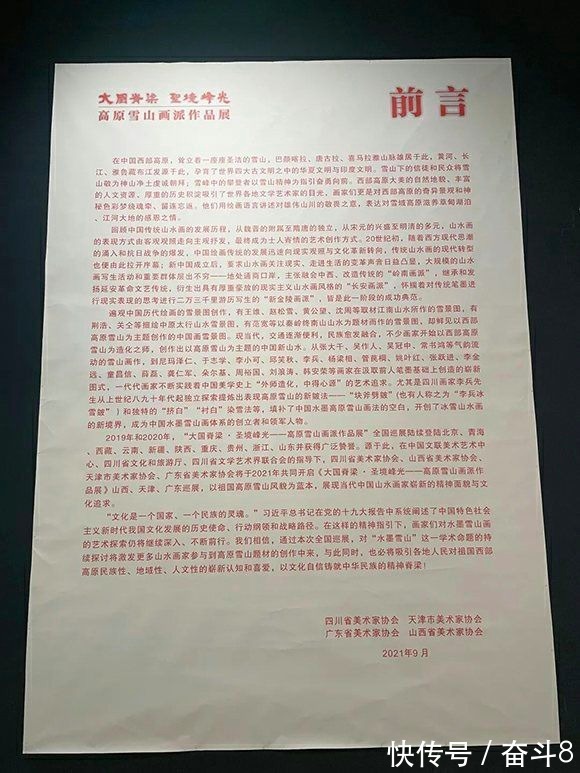 大国脊梁 圣境峰光
高原雪山画派作品展
前言
在中国西部高原，耸立着一座座圣洁的雪山，巴颜喀拉、唐古拉、喜马拉雅山脉雄居于此，黄河、长
江、雅鲁藏布江发源于此，孕育了世界四大古文明之中的华夏文明与印度文明。雪山下的信徒和民众将雪
山敬为神山净土虔诚朝拜；雪峰中的攀登者以雪山精神为指引奋勇向前。西部高原大美的自然地貌、丰富
的人文资源、厚重的历史积淀吸引了世界各地文学艺术家的目光，画家们更是对西部高原的奇异景观和神
秘色彩梦绕魂牵、留连忘返。他们用绘画语言讲述对雄伟山川的敬畏之意，表达对雪域高原滋养草甸湖泊
、江河大地的感恩之情。
回顾中国传统山水画的发展历程，从魏晋的附属至隋唐的独立，从宋元的兴盛至明清的多元，山水画
的表现方式由客观观照走向主观抒发，最终成为士人寄情的艺术创作方式。20世纪初，随着西方现代思潮
的涌入和抗日战争的爆发，中国绘画传统的发展迅速向现实观照与文化革新转向，传统山水画的现代转型
也便由此拉开序幕；新中国成立后，要求山水画关注现实、走进生活的变革声音日益凸显，大规模的山水
画写生活动和重要群体层出不穷——地处通商口岸，主张融合中西、改造传统的“岭南画派”，继承和发
扬延安革命文艺传统，衍生出具有厚重豪放的现实主义山水画风格的“长安画派”，怀揣着对传统笔墨进
行现实表现的思考进行二万三千里游历写生的“新金陵画派”，皆是此一阶段的成功典范。
遍观中国历代绘画的雪景图创作，有王维、赵松雪、黄公望、沈周等取材江南山水所作的雪景图，有
荆浩、关仝等描绘中原太行山水雪景图，有范宽等以秦岭终南山山水为题材而作的雪景图，却鲜见以西部
高原雪山为主题创作的中国画雪景图。现当代，交通逐渐便利，民族愈发融合，不少画家开始以西部高原
雪山为造化之师，创作出以高原雪山为主体的中国新山水。从张大千、吴作人、吴冠中、常书鸿等气韵流
动的雪山画作，到尼玛泽仁、于志学、李小可、邱笑秋、李兵、杨梁相、管苠棡、姚叶红、张跃进、李金
远、童昌信、薛磊、龚仁军、朵尔基、周裕国、刘浪涛、韩安荣等画家在汲取前人笔墨基础上创造的崭新
图式，一代代画家不断实践着中国美学史上“外师造化，中得心源”的艺术追求。尤其是四川画家李兵先
生从上世纪八九十年代起独立探索提炼出表现高原雪山的新皴法——“块斧劈皴”(也有人称之为“李兵冰
雪皴”）和独特的“挤白”“衬白”染雪法等，填补了中国水墨高原雪山画法的空白，开创了冰雪山水画
的新境界，成为中国水墨雪山画体系的创立者和领军人物。
2019年和2020年，“大国脊梁·圣境峰光——高原雪山画派作品展”全国巡展陆续登陆北京、青海
、西藏、云南、新疆、陕西、重庆、贵州、浙江、山东并获得广泛赞誉。源于此，在中国文联美术艺术中
心、四川省文化和旅游厅、四川省文学艺术界联合会的指导下，四川省美术家协会、山西省美术家协会、
天津市美术家协会、广东省美术家协会将于2021年共同开启《大国脊梁·圣境峰光——高原雪山画派作
品展》山西、天津、广东巡展，以祖国高原雪山风貌为蓝本，展现当代中国山水画家崭新的精神面貌与文
化追求。
“文化是一个国家、一个民族的灵魂。”习近平总书记在党的十九大报告中系统阐述了中国特色社会
主义新时代我国文化发展的历史使命、行动纲领和战略路径。在这样的精神指引下，画家们对水墨雪山画
的艺术探索仍将继续深入、不断前行。我们相信，通过本次全国巡展，对“水墨雪山”这一学术命题的持
续探讨将激发更多山水画家参与到高原雪山题材的创作中来，与此同时，也必将吸引各地人民对祖国西部
高原民族性、地域性、人文性的崭新认知和喜爱，以文化自信铸就中华民族的精神脊梁！
四川省美术家协会 天津市美术家协会
广东省美术家协会 山西省美术家协会
2021年9月
快传号 / 奋斗8